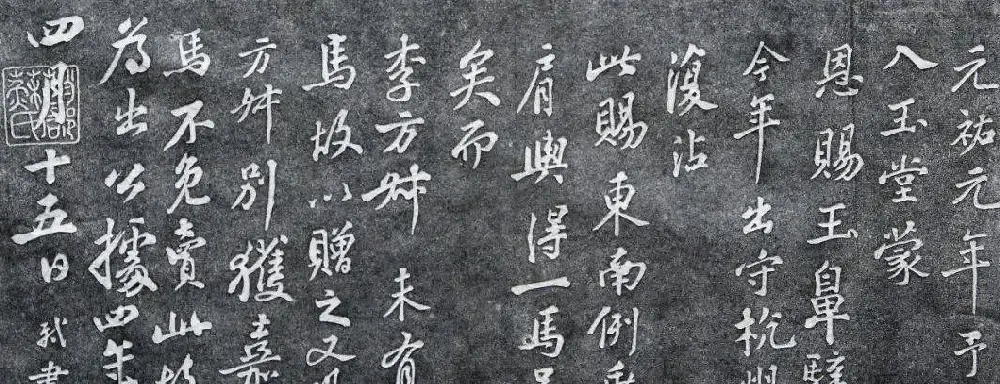 元祐元年予
入玉堂蒙
恩賜玉鼻
今年出守杭
復沾
此賜東南例
肩輿得一馬
矣而
李方叔未有
馬故以贈之又
方叔別獲嘉
馬不免賣此
為出公據四年
四月十五日軾書